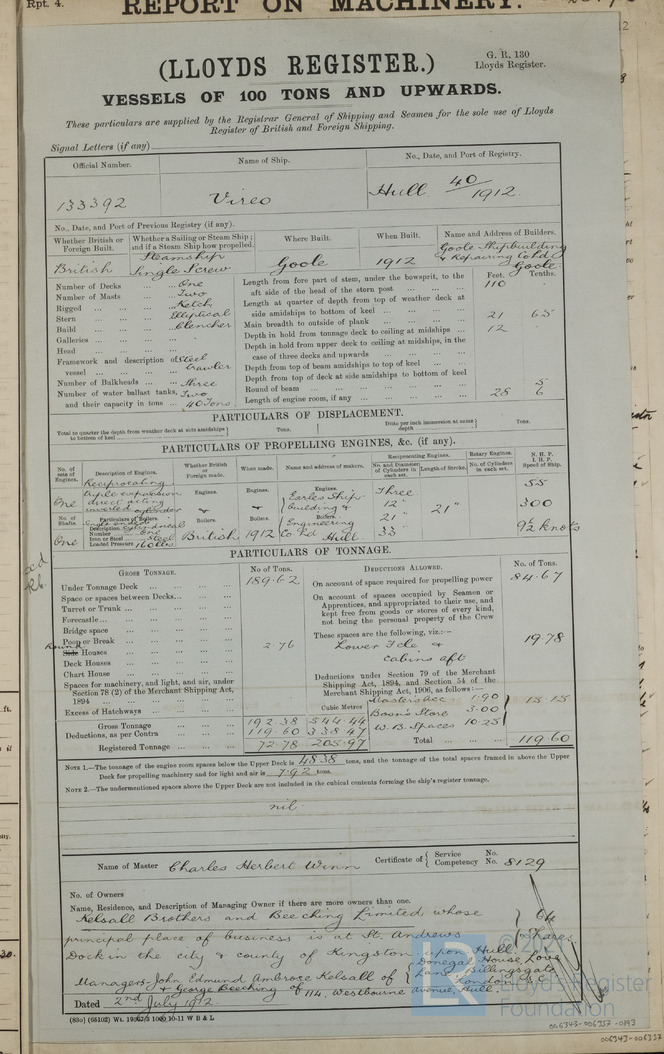 Rpt. 4.
REPORT ON MACHINERY.
(LLOYDS REGISTER.)
G. R. 130
Lloyds Register.
VESSELS OF 100 TONS AND UPWARDS.
These particulars are supplied by the Registrar General of Shipping and Seamen for the sole use of Lloyds
Register of British and Foreign Shipping.
Signal Letters (if any)
Official Number. Name of Ship. No., Date, and Port of Registry.
133392 Vireo Hull 40/1912.
No., Date, and Port of Previous Registry (if any).
Whether British or Foreign Built. Whether a Sailing or Steam Ship; and if a Steam Ship how propelled. Where Built. When Built. Name and Address of Builders.
British Steamship Single Screw Goole 1912 Goole Shipbuilding & Repairing Co Ld Goole
Feet. Tenths.
Number of Decks ... One
Number of Masts ... Two
Rigged ... Ketch
Stern ... Elliptical
Build ... Clencher
Galleries ...
Head ...
Framework and description of vessel ... Steel trawler
Number of Bulkheads ... Three
Number of water ballast tanks, and their capacity in tons ... Two 40 Tons.
Length from fore part of stem, under the bowsprit, to the aft side of the head of the stern post ... 110
Length at quarter of depth from top of weather deck at side amidships to bottom of keel ...
Main breadth to outside of plank ... 21 65
Depth in hold from tonnage deck to ceiling at midships ... 12
Depth in hold from upper deck to ceiling at midships, in the case of three decks and upwards ...
Depth from top of beam amidships to top of keel ...
Depth from top of deck at side amidships to bottom of keel
Round of beam ... 5
Length of engine room, if any ... 28 6
PARTICULARS OF DISPLACEMENT.
Total to quarter the depth from weather deck at side amidships to bottom of keel Tons. Ditto per inch immersion at same depth Tons.
PARTICULARS OF PROPELLING ENGINES, &c. (if any).
No. of sets of Engines. Description of Engines. Whether British or Foreign made. When made. Name and address of makers. Reciprocating Engines. No. and Diameter of Cylinders in each set. Length of Stroke. Rotary Engines. No. of Cylinders in each set. N. H. P. I. H. P. Speed of Ship.
One Reciprocating triple expansion direct acting inverted cylinder Engines. Engines. Engines. Earles Ship- Three 12" 21" 33 21" 55 300 9½ knots
No. of Shafts. Particulars of Boilers. Boilers. Boilers. Boilers.
One Description Cylindrical Number One Iron or Steel Steel Loaded Pressure 160 lbs British 1912 building & Engineering Co Ld Hull
PARTICULARS OF TONNAGE.
GROSS TONNAGE. No. of Tons. DEDUCTIONS ALLOWED. No. of Tons.
Under Tonnage Deck ... 189.62
Space or spaces between Decks ...
Turret or Trunk ...
Forecastle ...
Bridge space ...
Poop or Break ...
Round Side Houses ... 2.76
Deck Houses ...
Chart House ...
Spaces for machinery, and light, and air, under Section 78 (2) of the Merchant Shipping Act, 1894 ...
Excess of Hatchways ...
Gross Tonnage 192.38 544.44
Deductions, as per Contra 119.60 338.47
Registered Tonnage 72.78 205.97
Cubic Metres
On account of space required for propelling power 84.67
On account of spaces occupied by Seamen or Apprentices, and appropriated to their use, and kept free from goods or stores of every kind, not being the personal property of the Crew
These spaces are the following, viz.:—
Lower Fcle & 19.78
cabins aft
Deductions under Section 79 of the Merchant Shipping Act, 1894, and Section 54 of the Merchant Shipping Act, 1906, as follows:—
Masters acc 1.90
Boosn's Store 3.00 15.15
W.B. Spaces 10.25
Total ... 119.60
NOTE 1.—The tonnage of the engine room spaces below the Upper Deck is 48.38 tons, and the tonnage of the total spaces framed in above the Upper
Deck for propelling machinery and for light and air is 7.92 tons.
NOTE 2.—The undermentioned spaces above the Upper Deck are not included in the cubical contents forming the ship's register tonnage.
nil.
Name of Master Charles Herbert Winn Certificate of Service Competency No. No. 8129
No. of Owners
Name, Residence, and Description of Managing Owner if there are more owners than one.
Kelsall Brothers and Beeching Limited whose 64
principal place of business is at St. Andrews Shares
Dock in the city & county of Kingston upon Hull
Managers- John Edmund Ambrose Kelsall of Donegal House, Love Lane, Billingsgate London E.C.
& George Beeching of 114, Westbourne Avenue, Hull.
Dated 2nd July 1912
© 2021
LR
Lloyd's Register
Foundation
006343-006357-0193